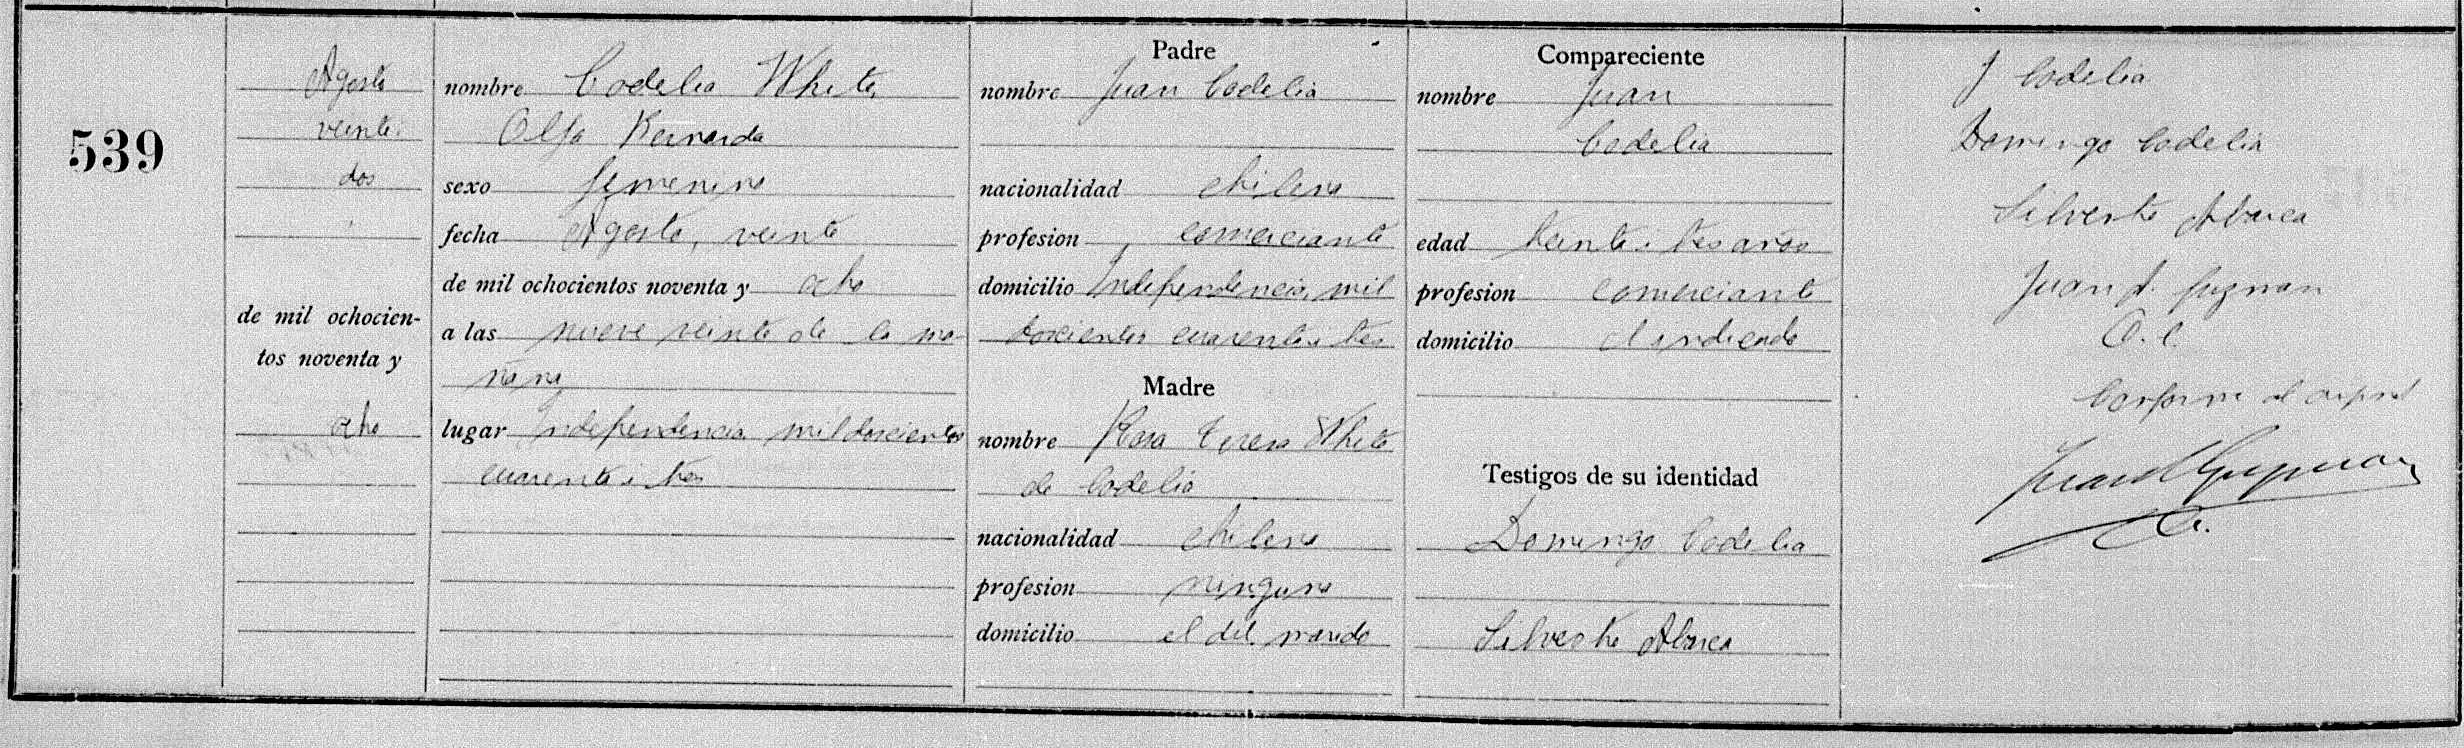 539
Agosto
veinti
dos
de mil ochocien-
tos noventa y
ocho
nombre Codelia White,
Olga Bernarda
sexo femenino
fecha Agosto, veinte
de mil ochocientos noventa y ocho
a las nueve veinte de la ma-
ñana
lugar Independencia mil doscientos
cuarenta i tres
Padre
nombre Juan Codelia
nacionalidad chileno
profesion comerciante
domicilio Independencia, mil
doscientos cuarenta i tres
Madre
nombre Rosa Teresa White
de Codelia
nacionalidad chilena
profesion ninguna
domicilio el del marido
Compareciente
nombre Juan
Codelia
edad treinta i tres años
profesion comerciante
domicilio el indicado
Testigos de su identidad
Domingo Codelia
Silvestre Abarca
J Codelia
Domingo Codelia
Silvestre Abarca
Juan d. Guzman
O. C.
Conforme al orijinal
Juan d Guzman